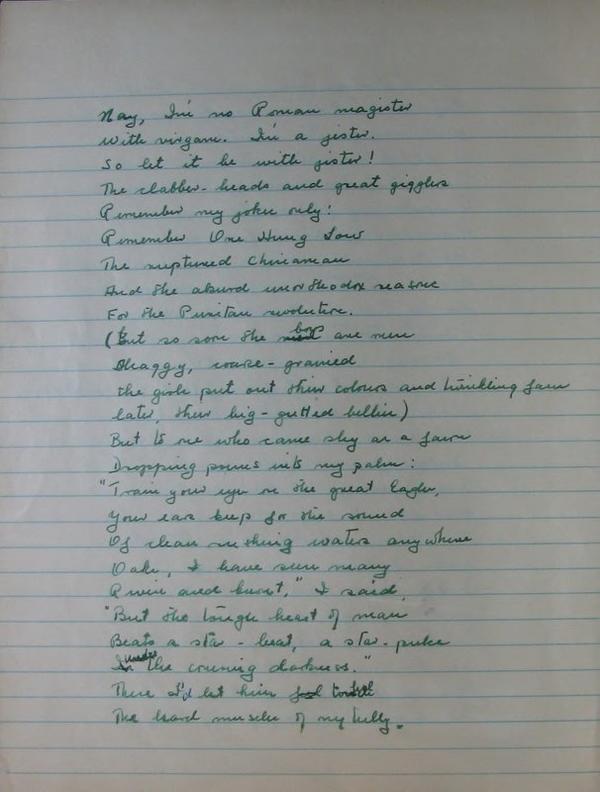 Nay, I'm no Roman magister
With virgam. I'm a jester.
So let it be with jester!
The clabber-heads and great gigglers
Remember my jokes only:
Remember One Hung Low
The ruptured Chinaman
And the absurd unorthodox reasons
For the Puritan revolution.
(But so soon the boys are men
Shaggy, coarse-grained
the girls put out their colours and twinkling
later, their big-gutted bellies)
But to one who came shy as a fawn
Dropping poems into my palm:
"Train your eyes on the great Eagle,
Your ears keep for the sound
Of clean rushing waters anywhere
Oaks, I have seen many
Ruin and burst," I said,
"But the tough heart of man
Beats a star-beat, a star-pulse
Under the coming darkness."
There I'd let him feel
The hard muscles of my belly.